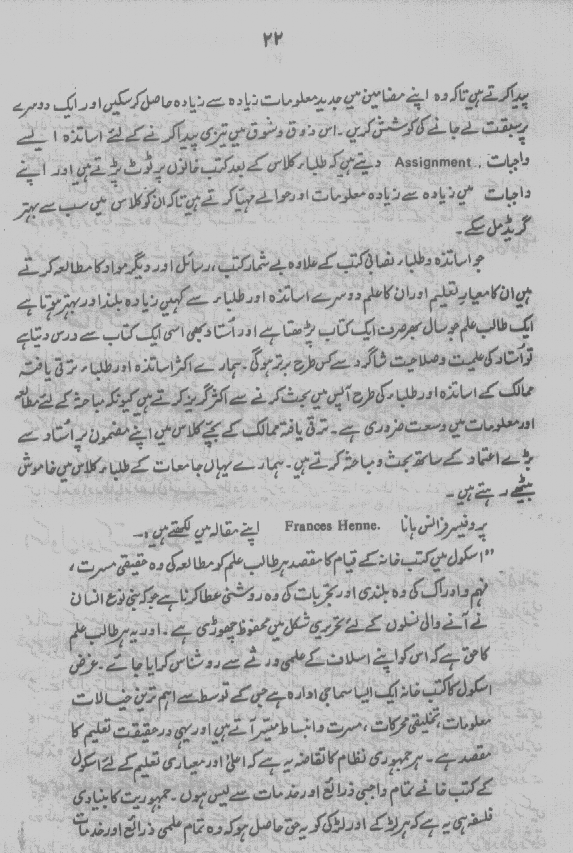 ۲۲
پیدا کرتے ہیں تاکہ وہ اپنے مضامین میں جدید معلومات زیادہ سے زیادہ حاصل کر سکیں اور ایک دوسرے
پر سبقت لے جانے کی کوشش کریں۔ اس ذوق و شوق میں تیزی پیدا کرنے کے لئے اساتذہ ایسے
واجبات Assignment. دیتے ہیں کہ طلباء کلاس کے بعد کتب خانوں پر ٹوٹ پڑتے ہیں اور اپنے
واجبات میں زیادہ سے زیادہ معلومات اور حوالے مہیا کرتے ہیں تاکہ ان کو کلاس میں سب سے بہتر
گریڈ مل سکے۔
جو اساتذہ و طلباء نصابی کتب کے علاوہ بے شمار کتب، رسائل اور دیگر مواد کا مطالعہ کرتے
ہیں ان کا معیارِ تعلیم اور ان کا علم دوسرے اساتذہ اور طلباء سے کہیں زیادہ بلند اور بہتر ہوتا ہے
ایک طالب علم جو سال بھر صرف ایک کتاب پڑھتا ہے اور استاد بھی اسی ایک کتاب سے درس دیتا ہے
تو استاد کی علمیت و صلاحیت شاگرد سے کس طرح برتر ہوگی۔ ہمارے اکثر اساتذہ اور طلباء ترقی یافتہ
ممالک کے اساتذہ اور طلباء کی طرح آپس میں بحث کرنے سے اکثر گریز کرتے ہیں کیونکہ مباحثہ کے لئے مطالعہ
اور معلومات میں وسعت ضروری ہے۔ ترقی یافتہ ممالک کے بچے کلاس میں اپنے مضمون پر استاد سے
بڑے اعتماد کے ساتھ بحث و مباحثہ کرتے ہیں۔ ہمارے یہاں جامعات کے طلباء کلاس میں خاموش
بیٹھے رہتے ہیں۔
پروفیسر فرانس ہانا Frances Henne. اپنے مقالہ میں لکھتے ہیں:۔
"اسکول میں کتب خانہ کے قیام کا مقصد ہر طالب علم کو مطالعہ کی وہ حقیقی مسرت،
فہم و ادراک کی وہ بلندی اور تجربات کی وہ روشنی عطا کرنا ہے جو کہ بنی نوع انسان
نے آنے والی نسلوں کے لئے تحریری شکل میں محفوظ چھوڑی ہے۔ اور یہ ہر طالب علم
کا حق ہے کہ اس کو اپنے اسلاف کے علمی ورثے سے روشناس کرایا جائے۔ غرض
اسکول کا کتب خانہ ایک ایسا سماجی ادارہ ہے جس کے توسط سے اہم ترین خیالات
معلومات، تخلیقی محرکات، مسرت و انبساط میسر آتے ہیں اور یہی درحقیقت تعلیم کا
مقصد ہے۔ ہر جمہوری نظام کا تقاضہ یہ ہے کہ اعلیٰ اور معیاری تعلیم کے لئے اسکول
کے کتب خانے تمام واجبی ذرائع اور خدمات سے لیس ہوں۔ جمہوریت کا بنیادی
فلسفہ ہی یہ ہے کہ ہر لڑکے اور لڑکی کو یہ حق حاصل ہو کہ وہ تمام علمی ذرائع اور خدمات